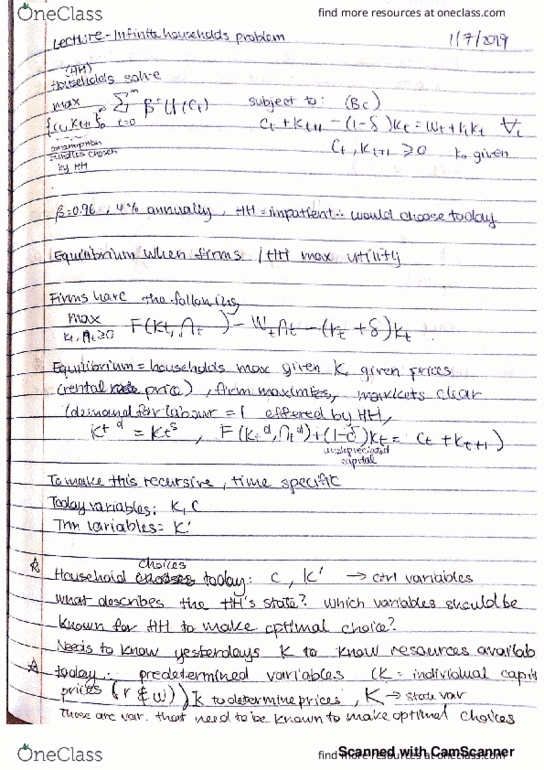 OneClass
find more resources at oneclass.com
Lecture - Infinite households problem
1/7/2019
(HH)
Households solve
max Σ β^t U(Ct) subject to: (BC)
{Ct, Kt+1}∞ t=0 t=0 Ct + Kt+1 - (1-δ)Kt = Wt + rtKt ∀t
consumption
bundles chosen
by HH
Ct, Kt+1 ≥ 0 K0 given
β=0.96, 4% annually, HH = impatient ∴ would choose today
Equilibrium when firms / HH max utility
Firms have the following
max F(Kt, nt) - Wt nt - (rt + δ)Kt
Kt, nt ≥ 0
Equilibrium = households max given K, given prices
(rental price), firm maximizes, markets clear
(demand for labour = 1 offered by HH,
Kt^d = Kt^s, F(Kt^d, nt^d) + (1-δ)Kt = Ct + Kt+1)
undepreciated
capital
To make this recursive, time specific
Today variables: K, C
Tmr variables = K'
Household choices today: C, K' → ctrl variables
What describes the HH's state? Which variables should be
known for HH to make optimal choice?
Needs to know yesterdays K to know resources availab
today: predetermined variables (K = individual capit
prices (r & w)) K to determine prices, K → state var
These are var. that need to be known to make optimal choices
OneClass
find more resources at oneclass.com
Scanned with CamScanner